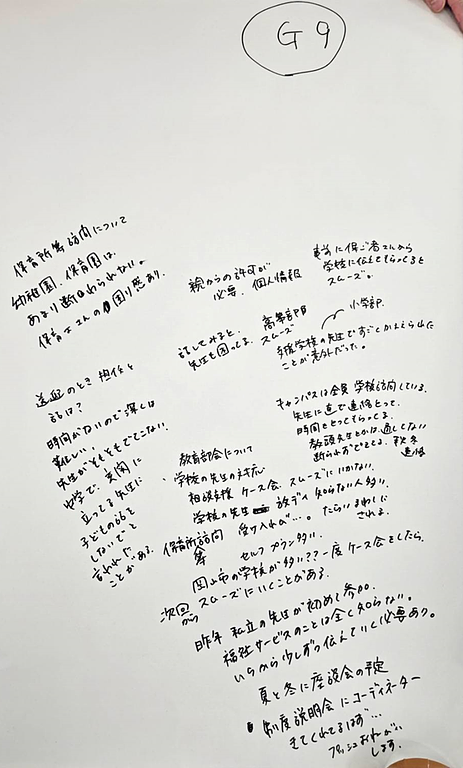 G9
保育所等訪問について
幼稚園、保育園は、
あまり断られない。
保育士さんの困り感あり。
親からの許可が
必要。個人情報
事前に保ご者さんから
学校に伝えてもらってると
スムーズ。
話してみると、
先生も困ってる。
高等部
スムーズ
小学部
支援学校の先生ですごくかまえられた
ことが意外だった。
送迎のとき 担任と
話は?
時間がないので深くは
難しい。
先生がそもそもでてこない。
中学で、玄関に
立ってる先生に
子どもの
しないでと
言われた
ことがある。
キャンパスは全員 学校訪問している。
先生に直で連絡とって、
時間をとってもらってる。
教頭先生とかは、通してない
断られずできてる
連絡
教育部会について
・学校の先生の
相談支援 ケース会、スムーズにいかない。
学校の先生 放デイ 知らない人多い。
保育所訪問
等
受け入れが…。たらいまわしに
される。
セルフプラン多い。
岡山市の学校が多い??一度ケース会をしたら、
スムーズにいくことがある。
次回
から
昨年 私立の先生が初めて参加。
福祉サービスのことは全く知らない。
いちから少しずつ伝えていく必要あり。
夏と冬に座談会の予定
制度説明会にコーディネーター
きてくれてるはず…
プッシュおねがい
します。